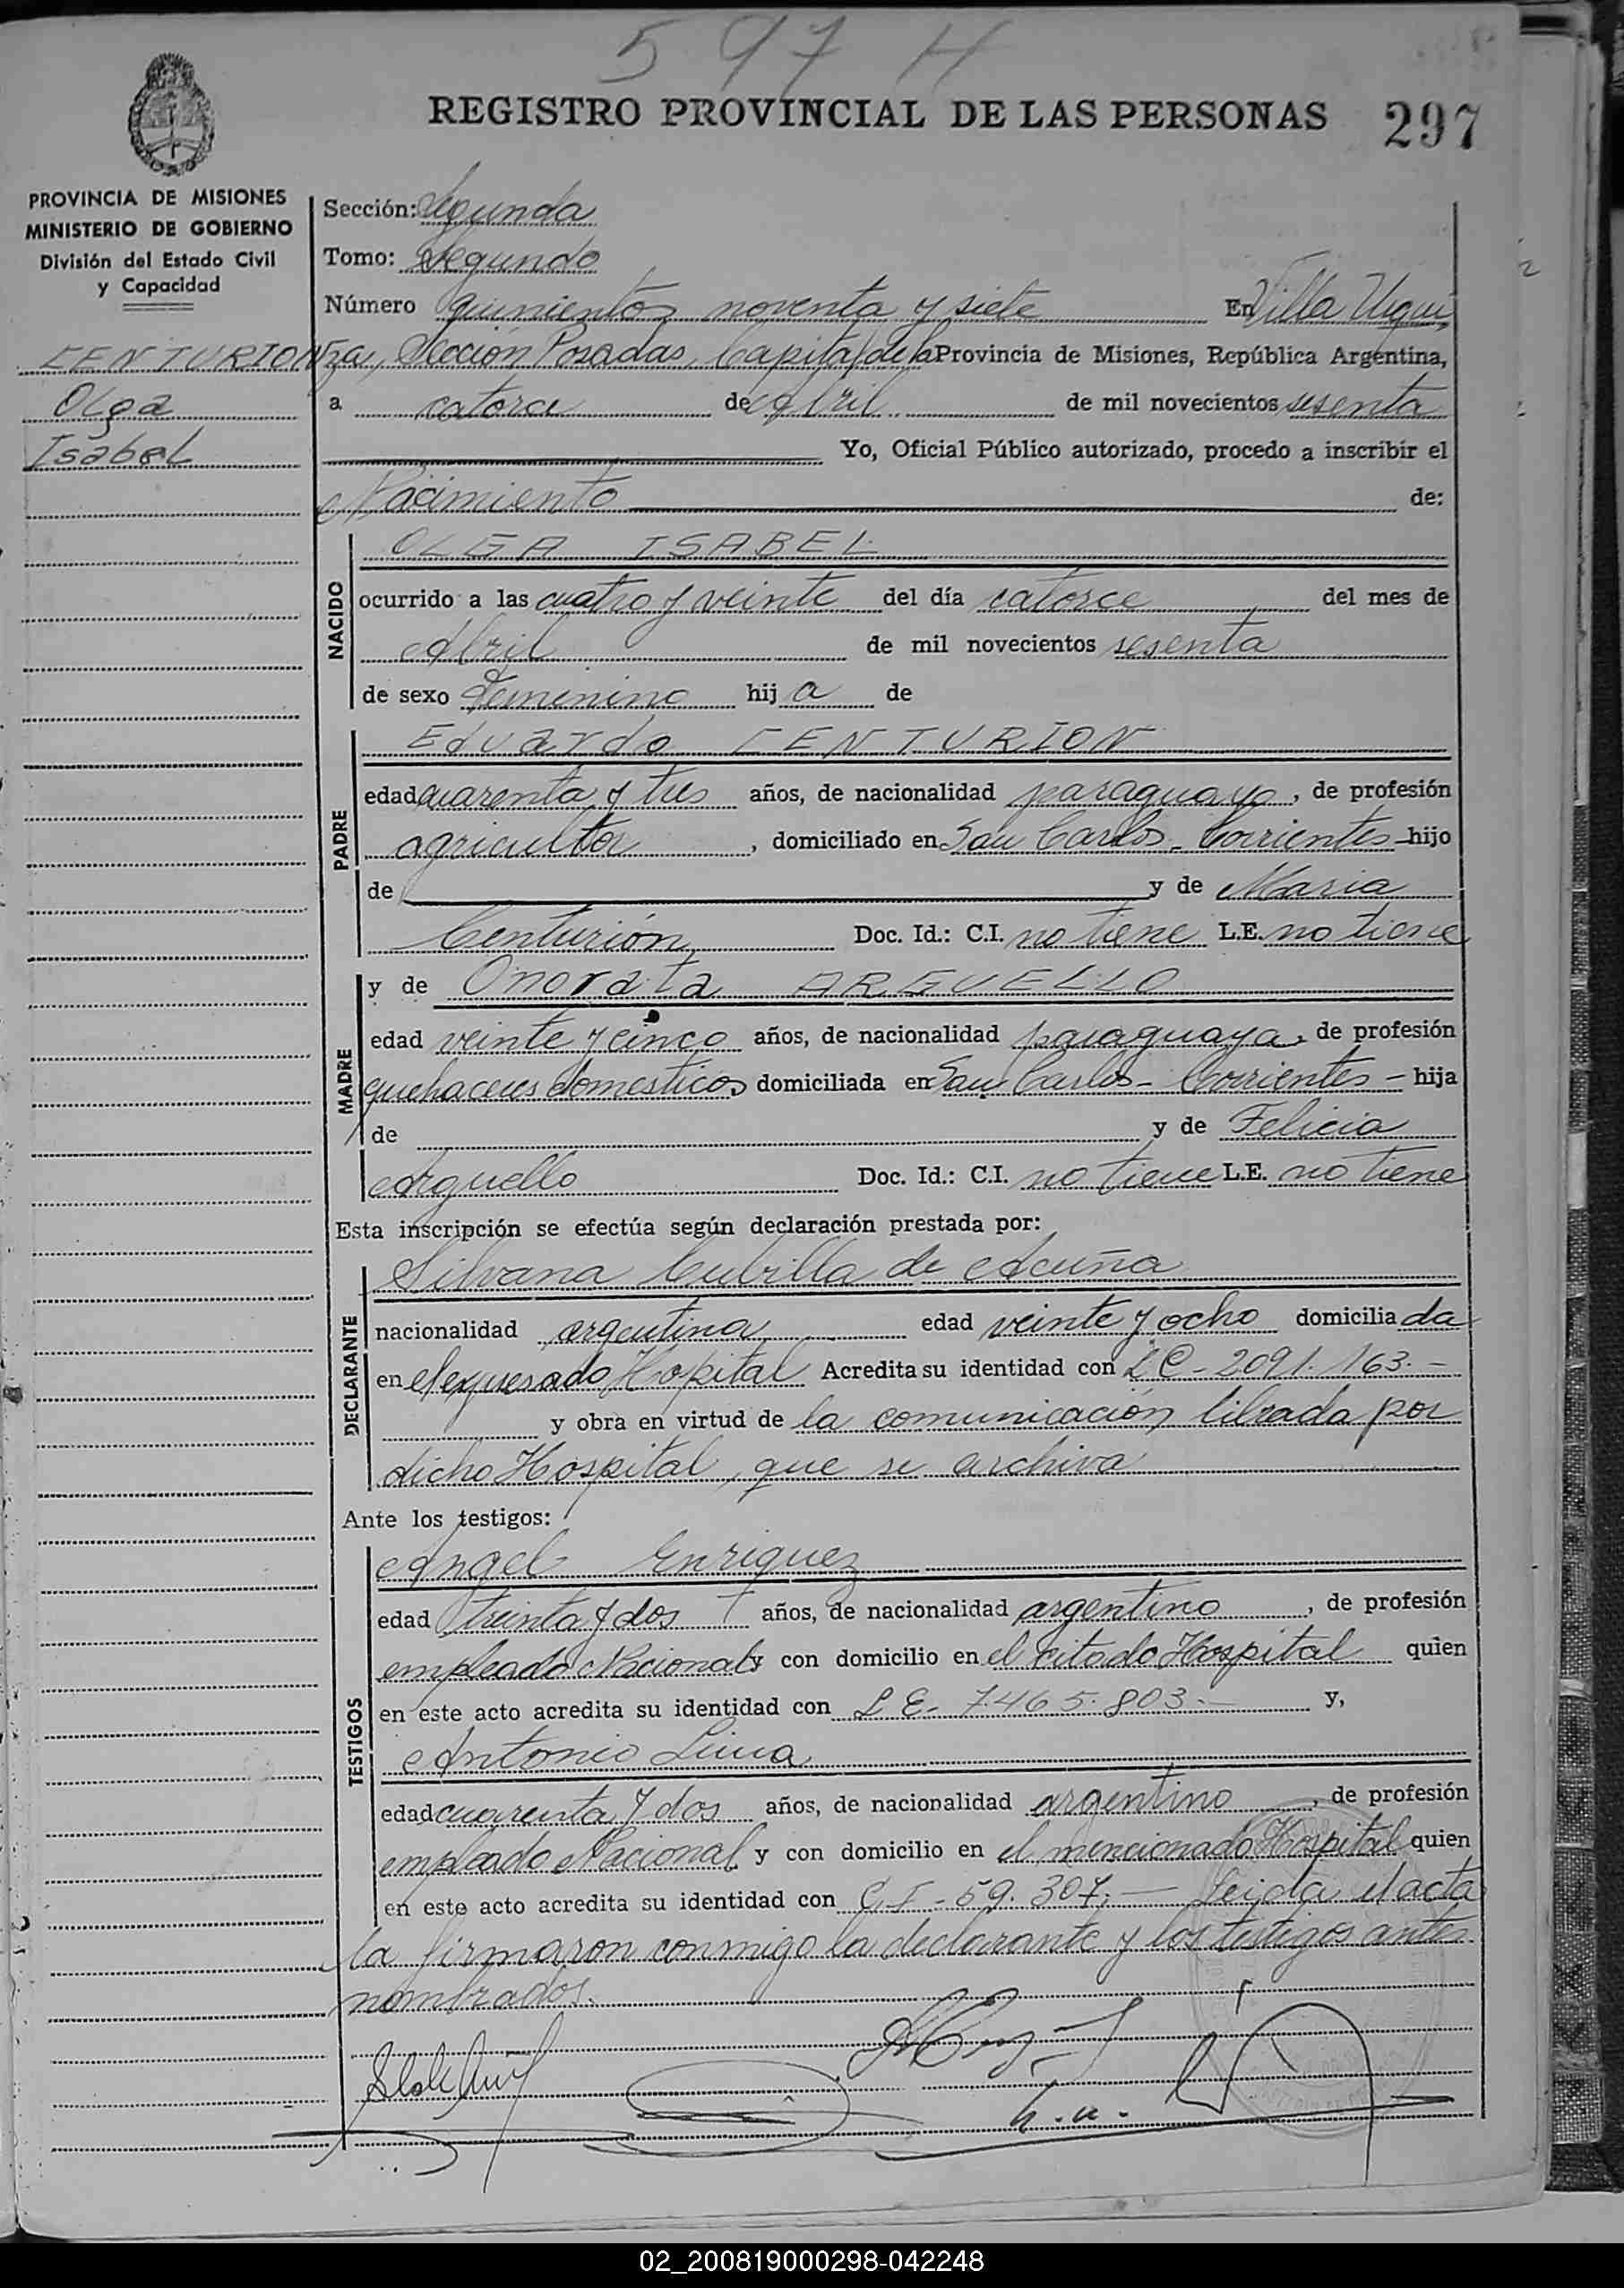 597 H
REGISTRO PROVINCIAL DE LAS PERSONAS 297
PROVINCIA DE MISIONES
MINISTERIO DE GOBIERNO
División del Estado Civil
y Capacidad
CENTURION
Olga
Isabel
Sección: Segunda
Tomo: Segundo
Número quinientos noventa y siete En Villa Urqui
za, Sección Posadas, Capital de la Provincia de Misiones, República Argentina,
a catorce de Abril de mil novecientos sesenta
Yo, Oficial Público autorizado, procedo a inscribir el
Nacimiento de:
NACIDO
OLGA ISABEL
ocurrido a las cuatro y veinte del día catorce del mes de
Abril de mil novecientos sesenta
de sexo Femenino hij a de
PADRE
Eduardo CENTURION
edad cuarenta y tres años, de nacionalidad paraguayo, de profesión
agricultor, domiciliado en San Carlos - Corrientes - hijo
de y de Maria
Centurión Doc. Id.: C.I. no tiene L.E. no tiene
MADRE
y de Onorata ARGUELLO
edad veinte y cinco años, de nacionalidad paraguaya, de profesión
quehaceres domesticos domiciliada en San Carlos - Corrientes - hija
de y de Felicia
Arguello Doc. Id.: C.I. no tiene L.E. no tiene
Esta inscripción se efectúa según declaración prestada por:
DECLARANTE
Silvana Cubilla de Acuña
nacionalidad argentina edad veinte y ocho domicilia da
en el expresado Hospital Acredita su identidad con LC - 2091.163.-
y obra en virtud de la comunicación librada por
dicho Hospital, que se archiva
Ante los testigos:
TESTIGOS
Angel Enriquez
edad treinta y dos años, de nacionalidad argentino, de profesión
empleado Nacional y con domicilio en el citado Hospital quien
en este acto acredita su identidad con L E - 7.465.803.- y,
Antonio Lima
edad cuarenta y dos años, de nacionalidad argentino, de profesión
empleado Nacional y con domicilio en el mencionado Hospital quien
en este acto acredita su identidad con C.I - 59.307.- Leida el acta
la firmaron conmigo la declarante y los testigos antes
nombrados.
02_200819000298-042248